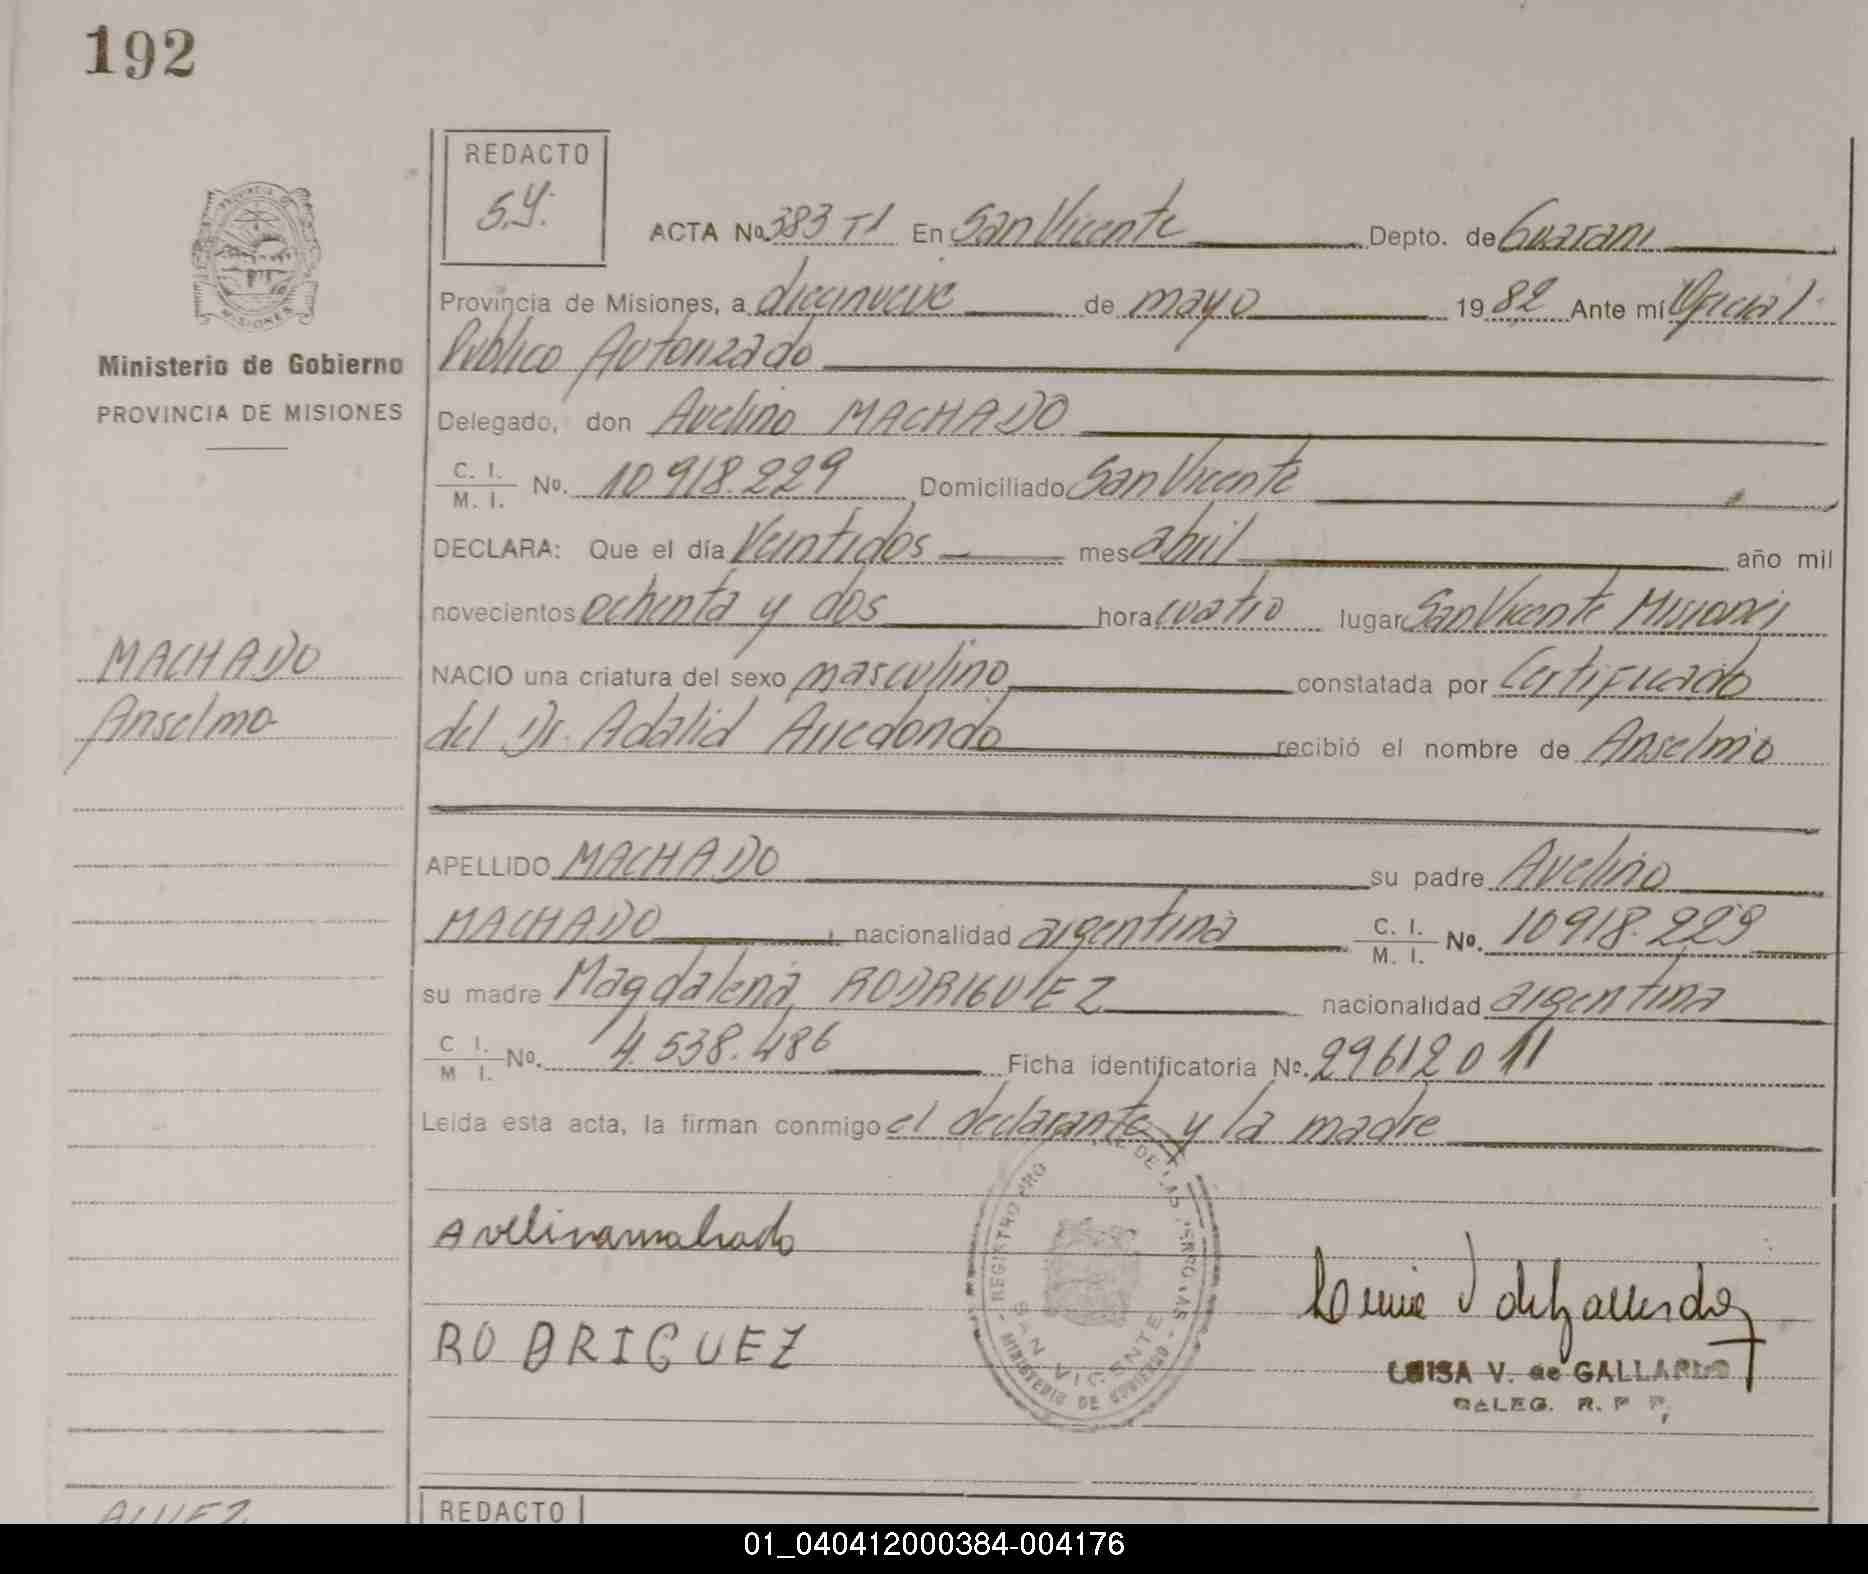 192
REDACTO
S.Y.
ACTA No. 383 T1 En San Vicente Depto. de Guarani
PROVINCIA
MISIONES
Provincia de Misiones, a diecinueve de mayo 1982 Ante mí Oficial
Ministerio de Gobierno
Publico Autorizado
PROVINCIA DE MISIONES
Delegado, don Avelino MACHADO
C. I. / M. I. No. 10918.229 Domiciliado San Vicente
DECLARA: Que el día Veintidos mes abril año mil
novecientos ochenta y dos hora cuatro lugar San Vicente Misiones
MACHADO
NACIO una criatura del sexo masculino constatada por Certificado
Anselmo
del Dr. Adalid Arredondo recibió el nombre de Anselmo
APELLIDO MACHADO su padre Avelino
MACHADO, nacionalidad argentina C. I. / M. I. No. 10918.229
su madre Magdalena RODRIGUEZ nacionalidad argentina
C I. / M I. No. 4.538.486 Ficha identificatoria No. 29612011
Leida esta acta, la firman conmigo el declarante y la madre
REGISTRO PRO DE LAS PERSONAS
SAN VICENTE
MINISTERIO DE GOBIERNO
Avelinamahado
RODRIGUEZ
LUISA V. de GALLARDO
DALEG. R. P P,
REDACTO
01_040412000384-004176